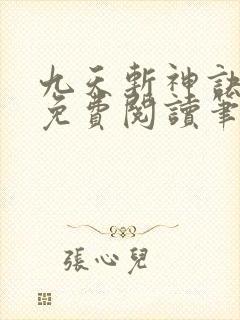 九天斬神訣
免費閱讀筆
張心兒